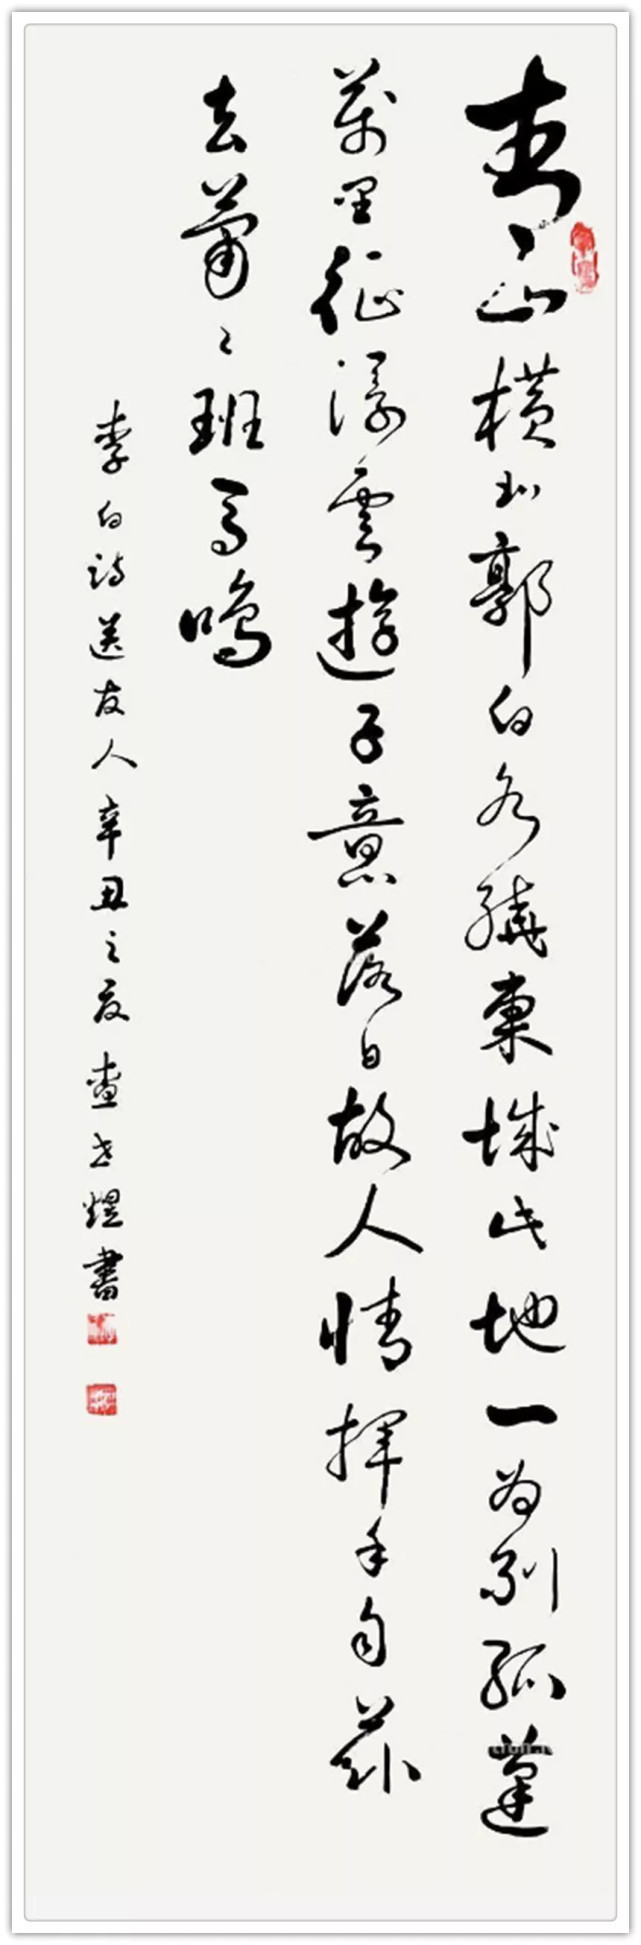 青山橫北郭白水繞東城此地一為別孤蓬
萬里征浮雲遊子意落日故人情揮手自茲
去蕭々班馬鳴
李白詩送友人辛丑之夏查煜書